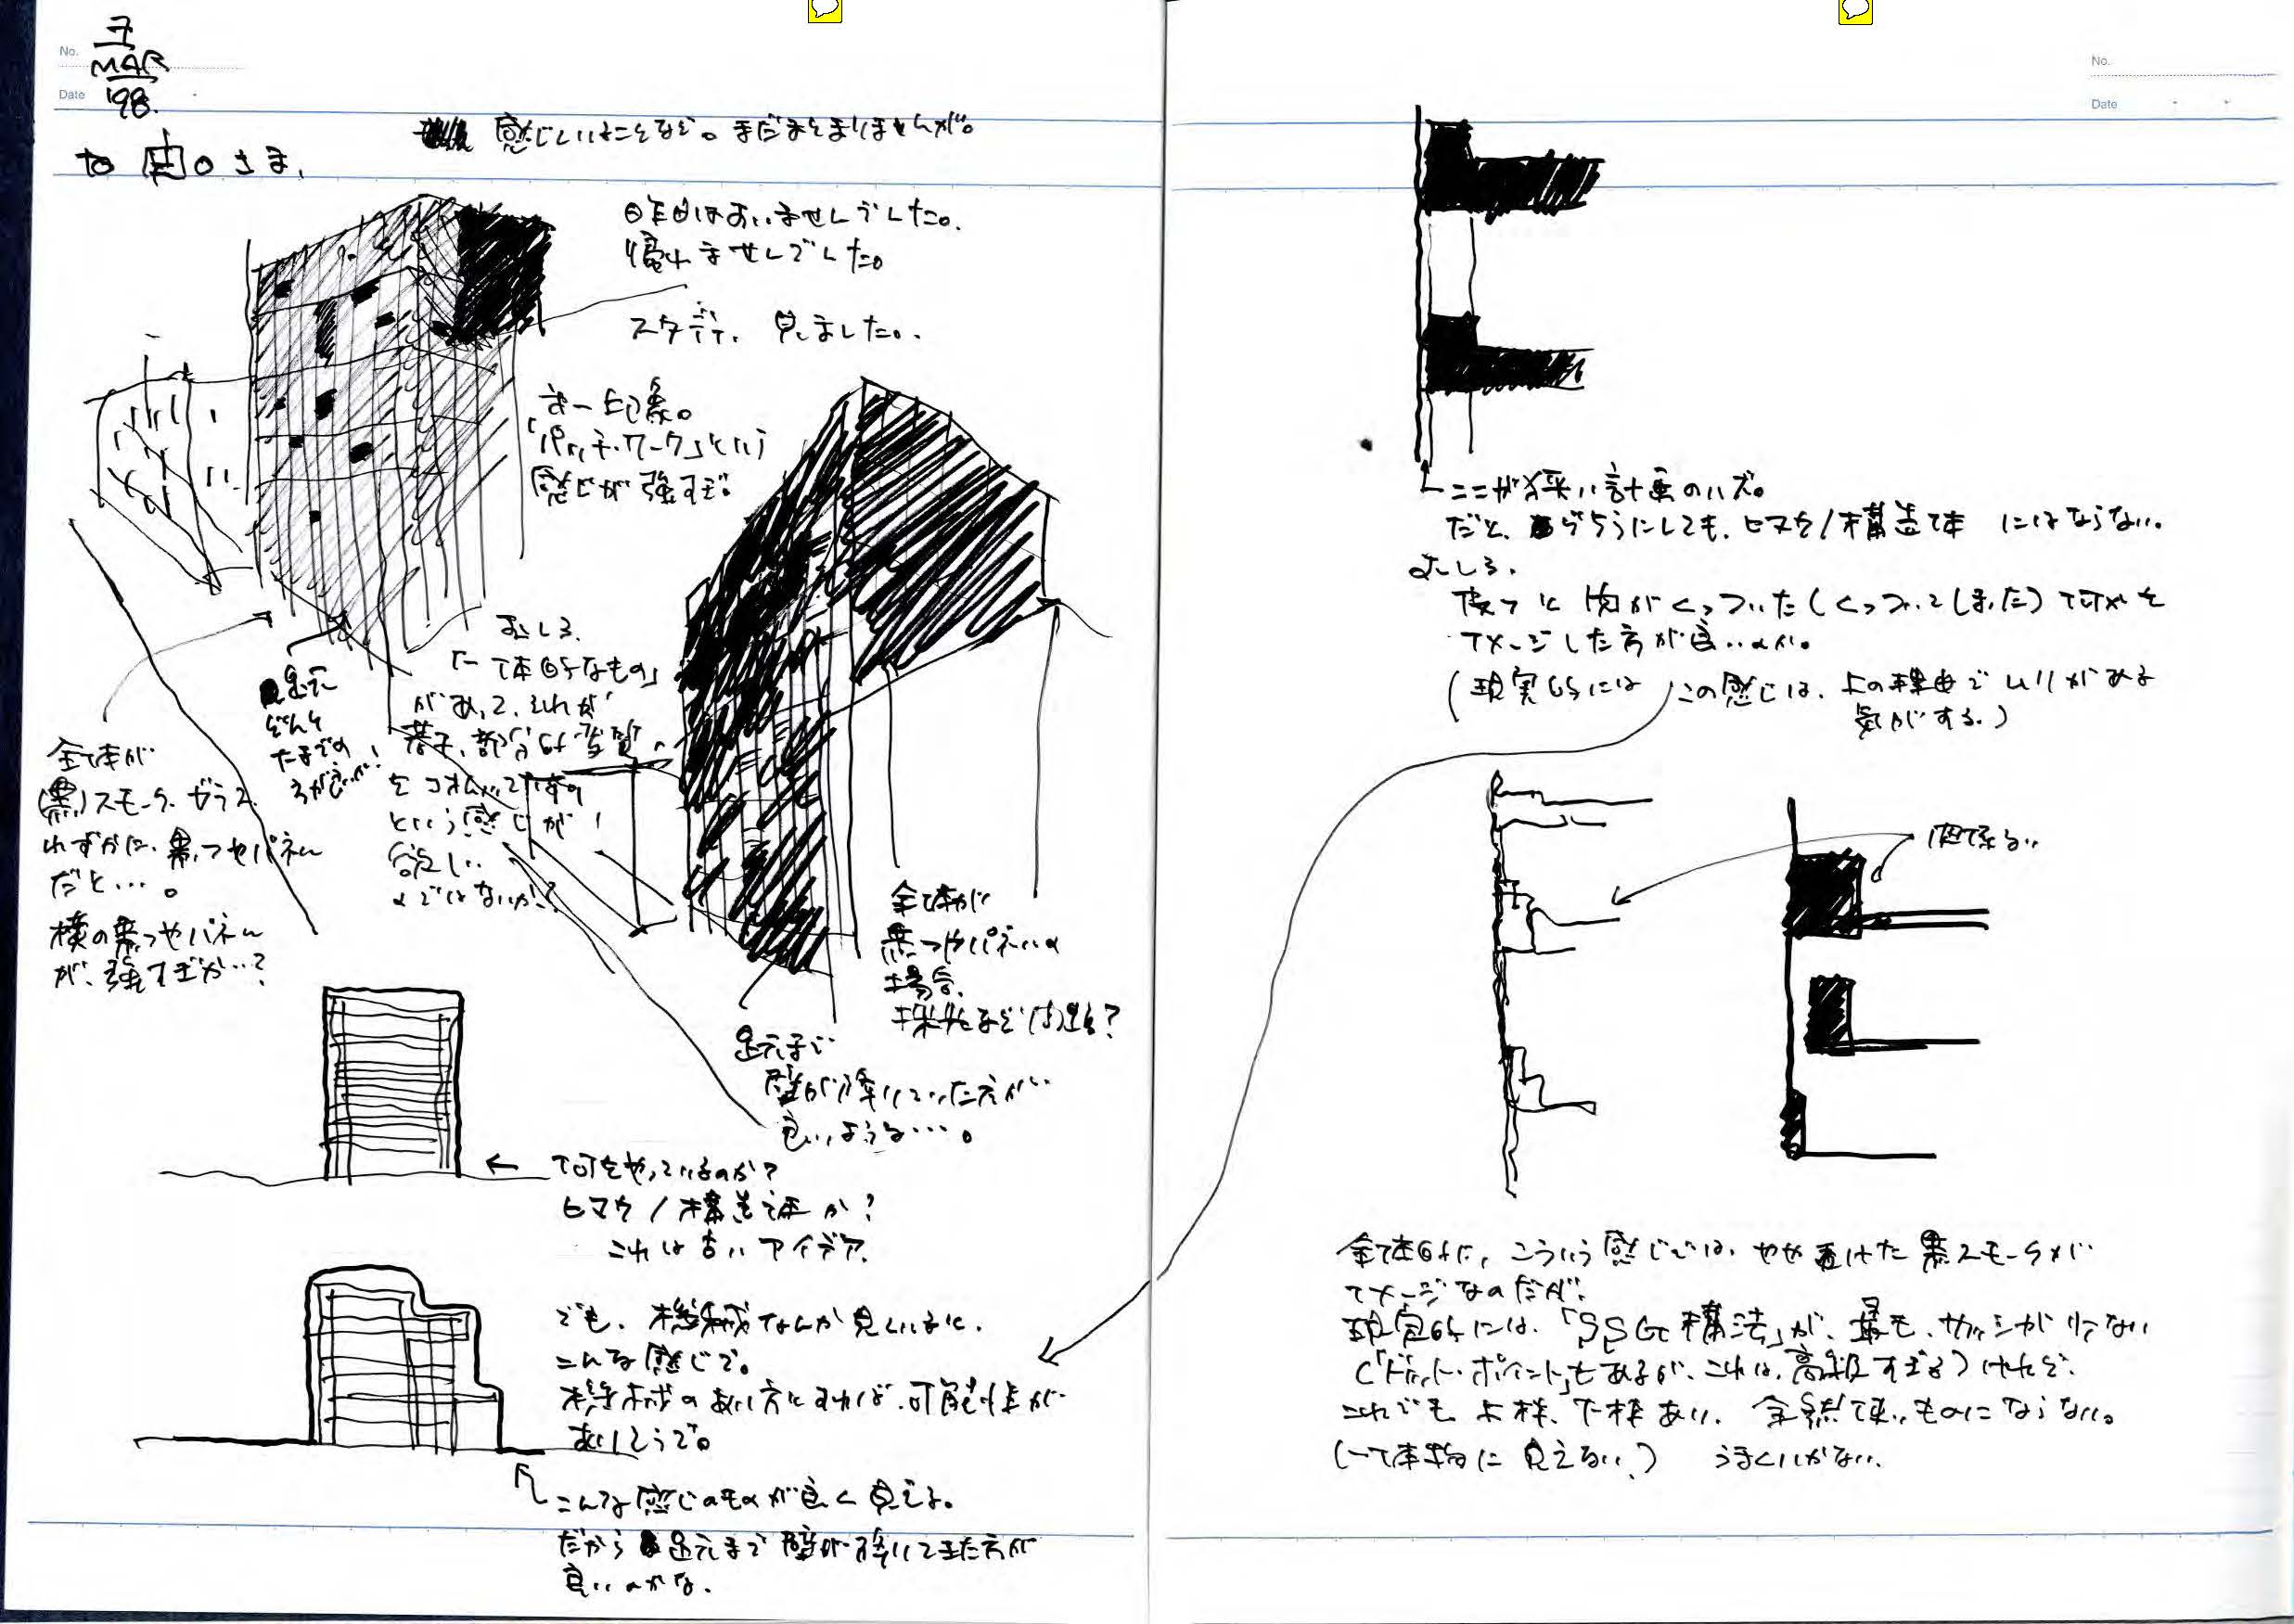 No.
7
MAR
Date '98.
to 由〇さま、
感じていることなど。まだまとまりませんが。
昨日はあいませんでした。
帰れませんでした。
スタディ、見ました。
第一印象。
「パッチ・ワーク」という
感じが強すぎ。
むしろ、
「一体的なもの」
があって、それが
若干、部分的変質
という感じが
欲しい
のではないか?
足元
どんと
全体が
(黒)スモーク・ガラス
わずかに、黒つやパネル
だと…。
横の黒つやパネル
が、強すぎか…?
全体が
黒つやパネルの
場合、
採光など問題?
足元まで
壁が降りていた方が
良いような…。
← 何をやっているのか?
ヒマク/構造体か?
これは古いアイデア。
でも、機械なんか見ていると、
こんな感じで。
機械のあり方にすれば、可能性が
ありそうで。
こんな感じのものが良く見える。
だから 足元まで壁が降りてきた方が
良いのかな。
No.
Date
ここが狭い計画のハズ。
だと、どちらにしても、ヒマク/構造体 にはならない。
むしろ、
皮フと肉がくっついた(くっついてしまった)何かを
イメージした方が良いのか。
(現実的には この感じは、上の理由でムリがある
気がする。)
関係ない
全体的に、こういう感じでは、やや透けた黒スモークが
イメージなのだが、
現実的には、「SSG構法」が、最も、サッシが少ない
(「ドット・ポイント」もあるが、これは、高級すぎる)けれど、
これでも、上枠、下枠あり、全然 ものにならない。
(一体物に見えない。) うまくいかない。